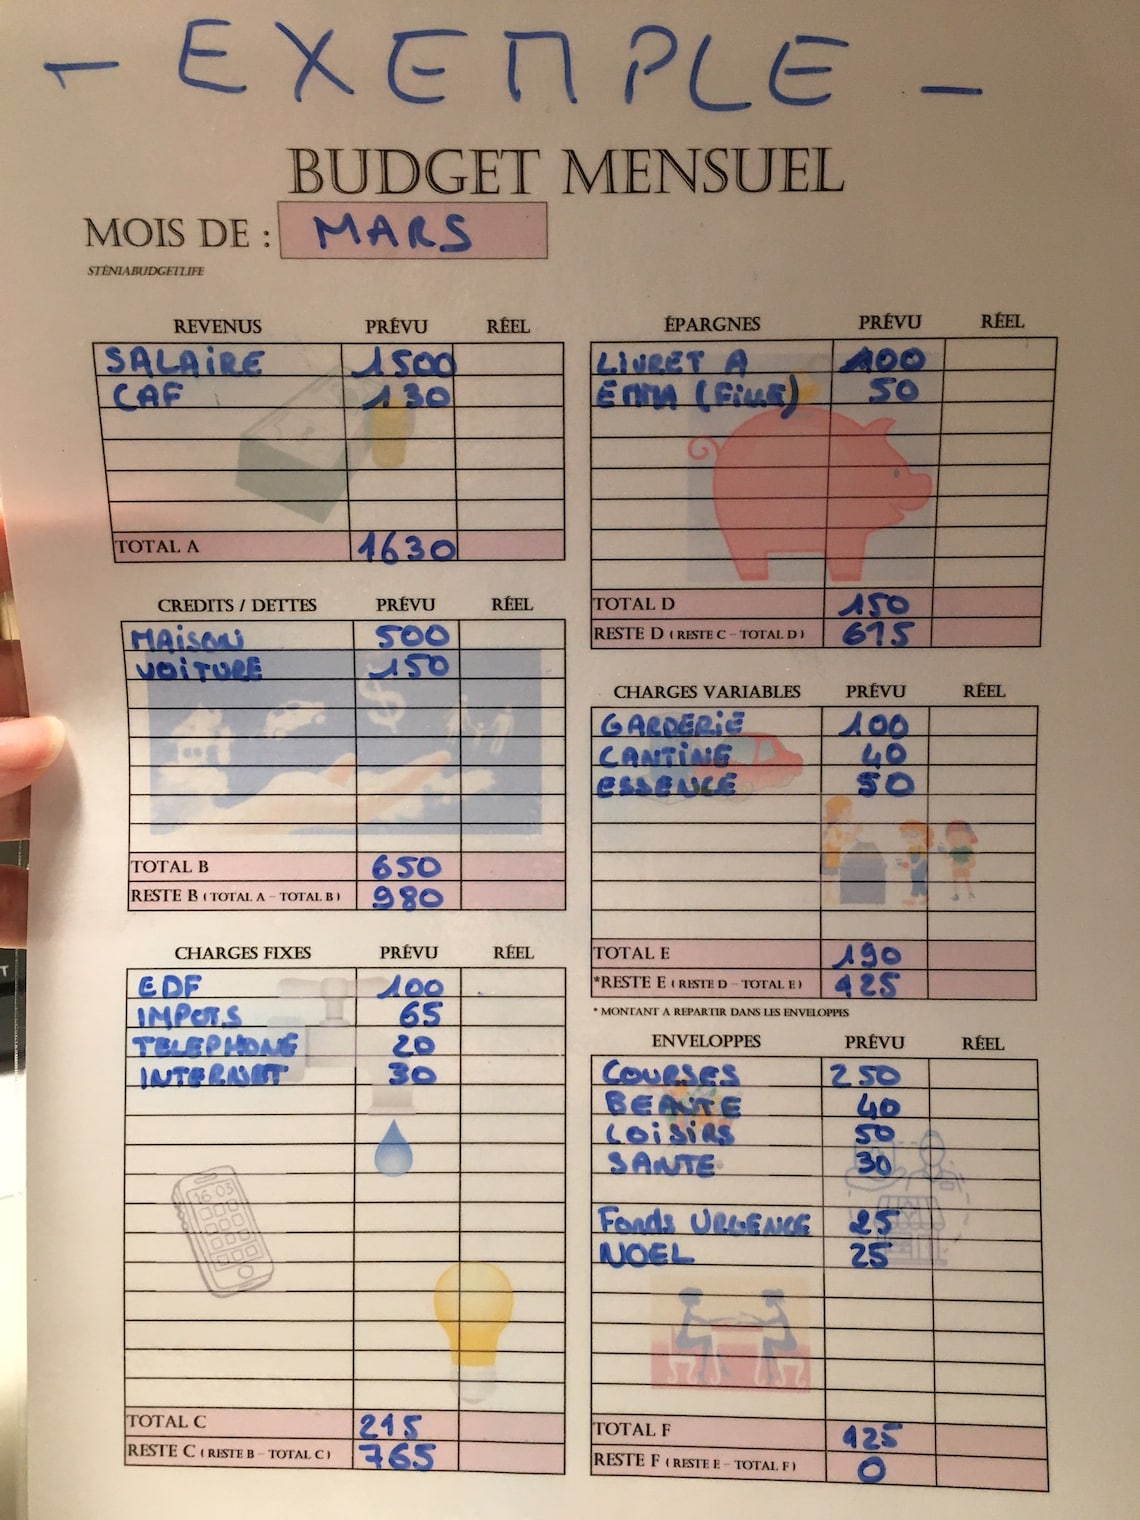 - EXEMPLE -
BUDGET MENSUEL
MOIS DE : MARS
STÉNIABUDGETLIFE
REVENUS PRÉVU RÉEL
SALAIRE 1500
CAF 130
TOTAL A 1630
CREDITS / DETTES PRÉVU RÉEL
MAISON 500
VOITURE 150
TOTAL B 650
RESTE B ( TOTAL A - TOTAL B ) 980
CHARGES FIXES PRÉVU RÉEL
EDF 100
IMPOTS 65
TELEPHONE 20
INTERNET 30
16 03
TOTAL C 215
RESTE C ( RESTE B - TOTAL C ) 765
ÉPARGNES PRÉVU RÉEL
LIVRET A 100
EMMA (FILLE) 50
TOTAL D 150
RESTE D ( RESTE C - TOTAL D ) 615
CHARGES VARIABLES PRÉVU RÉEL
GARDERIE 100
CANTINE 40
ESSENCE 50
TOTAL E 190
*RESTE E ( RESTE D - TOTAL E ) 425
* MONTANT A REPARTIR DANS LES ENVELOPPES
ENVELOPPES PRÉVU RÉEL
COURSES 250
BEAUTE 40
LOISIRS 50
SANTE 30
Fonds URGENCE 25
NOEL 25
TOTAL F 425
RESTE F ( RESTE E - TOTAL F ) 0